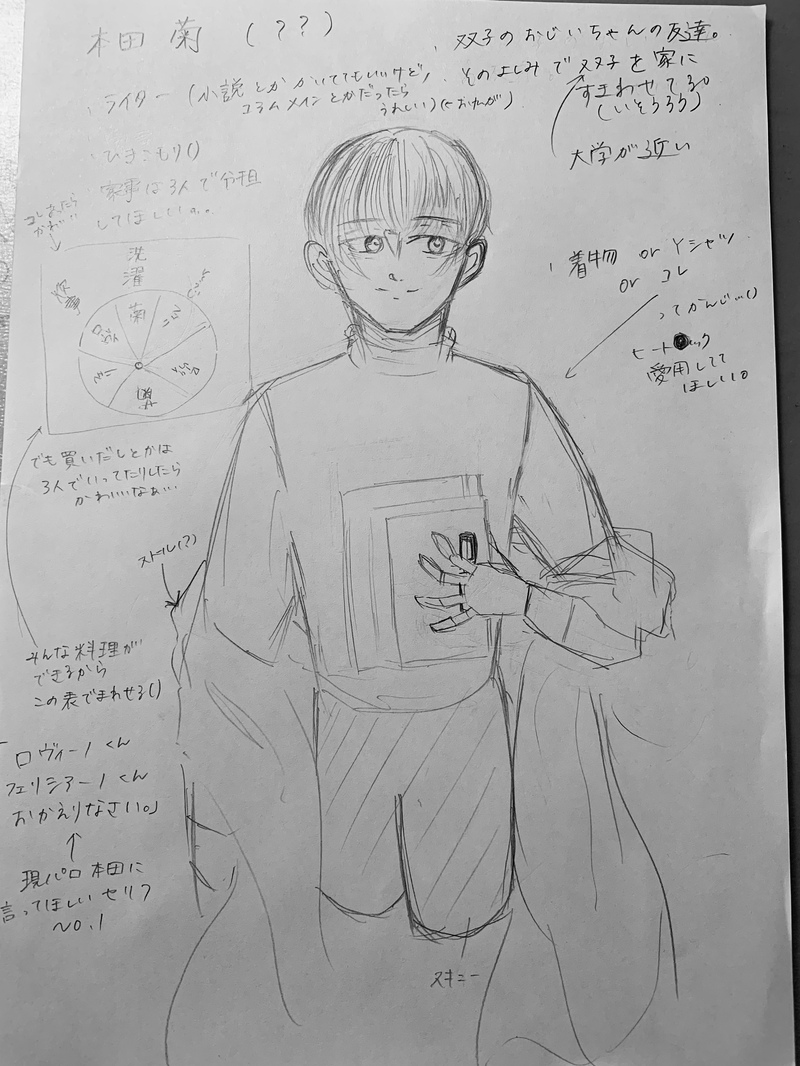 本田 菊 (??)
、ライター (小説とかかいててもいいけど、
コラムメインとかだったら
うれしい)
、ひきこもり()
家事は3人で分担
してほしい。。
コレあったら
かわいい
洗濯
炊事
菊
でも買いだしとかは
3人でいってたりしたら
かわいいなぁ…
みんな料理が
できるから
この表でまわせる()
「ロヴィーノくん
フェリシアーノくん
おかえりなさい。」
↑
現パロ本田に
言ってほしいセリフ
No.1
、双子のおじいちゃんの友達。
、そのよしみで双子を家に
すまわせてる。
(いそうろう)
大学が近い
、着物 or Yシャツ
or コレ
ってかんじ…()
ヒートテック
愛用してて
ほしい。
ストール(?)
スキニー